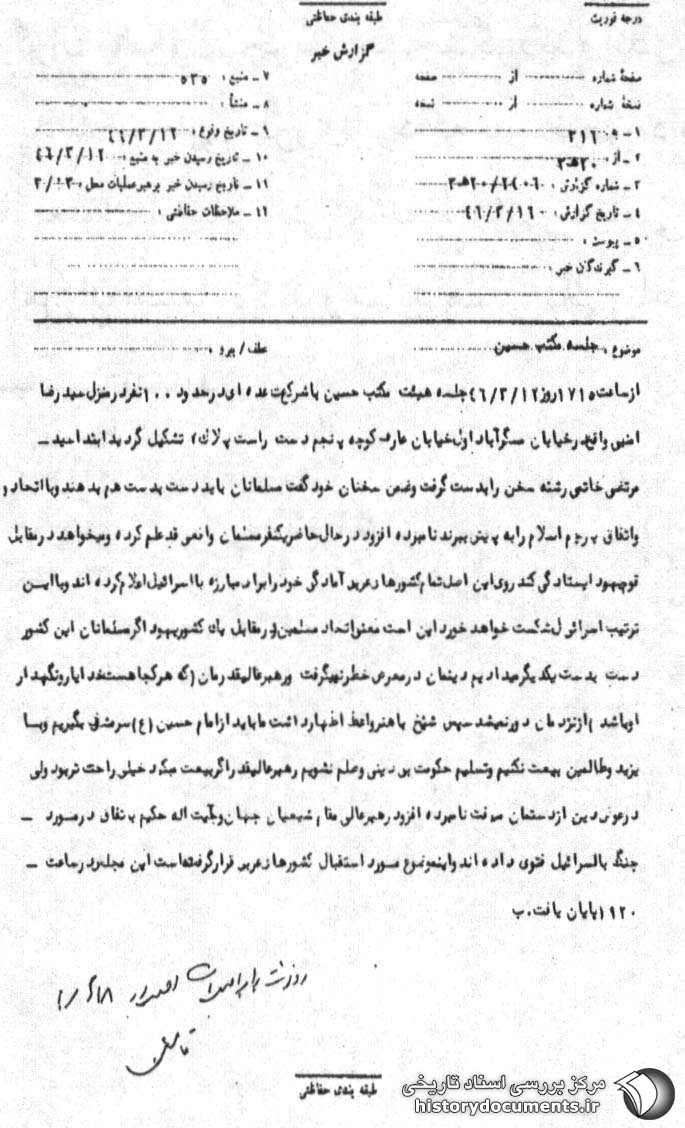 درجه فوریت
طبقه بندی حفاظتی
گزارش خبر
صفحهٔ شماره از صفحه
نسخهٔ شماره از نسخه
۱ـ به ۳۱۶
۲ـ از: ۲۰ه۳
۳ـ شماره گزارش:
۴ـ تاریخ گزارش: ۴۶/۳/۱۶
۵ـ پیوست:
۶ـ گیرندگان خبر:
۷ـ منبع: ۵۳۵
۸ـ منشأ:
۹ـ تاریخ وقوع: ۴۶/۳/۱۲
۱۰ـ تاریخ رسیدن خبر به منبع: ۴۶/۳/۱۲
۱۱ـ تاریخ رسیدن خبر برهبر عملیات محل:
۱۲ـ ملاحظات حفاظتی:
موضوع: جلسه مکتب حسین
عطف / پیرو:
از ساعت ۱۷۱۵ روز ۴۶/۳/۱۲ جلسه هیئت مکتب حسین با شرکت عده ای در حدود ۱۰۰ نفر در منزل سید رضا
واقع در خیابان عسگرآباد اول خیابان عارف کوچه پنجم دست راست پلاک ۶ تشکیل گردید ابتدا سید ـ
مرتضی خاتمی رشته سخن را بدست گرفت و ضمن سخنان خود گفت مسلمانان باید دست بدست هم بدهند و با اتحاد و
واتفاق پرچم اسلام را به پیش ببرند نامبرده افزود در حال حاضر یکنفر مسلمان واقعی قد علم کرده و میخواهد در مقابل
قوم یهود ایستادگی کند روی این اصل تمام کشورهای عربی آمادگی خود را برای مبارزه با اسرائیل اعلام کرده اند و با این
ترتیب اسرائیل شکست خواهد خورد این است معنی اتحاد مسلمین در مقابل یک کشور یهود اگر مسلمانان این کشور
دست بدست یکدیگر میدادیم دینمان در معرض خطر نمیگرفت و رهبر عالیقدرمان (که هر کجا هست خدا یار و نگهدار
او باشد) از نزدمان دور نمیشد سپس شیخ باهنر واعظ اظهار داشت ما باید از امام حسین (ع) سرمشق بگیریم و با
یزید و ظالمین بیعت نکنیم و تسلیم حکومت بی دینی و ظلم نشویم رهبر عالیقدر اگر بیعت میکرد خیلی راحت تر بود ولی
در عوض دین از دستمان میرفت نامبرده افزود رهبر عالی مقام شیعیان جهان و آیت اله حکیم باتفاق در مورد ـ
جنگ با اسرائیل فتوی داده اند و این موضوع مورد استقبال کشورهای عربی قرار گرفته است این مجلس در ساعت ـ
۱۹۲۰ پایان یافت. ب
طبقه بندی حفاظتی
مرکز بررسی اسناد تاریخی
historydocuments.ir